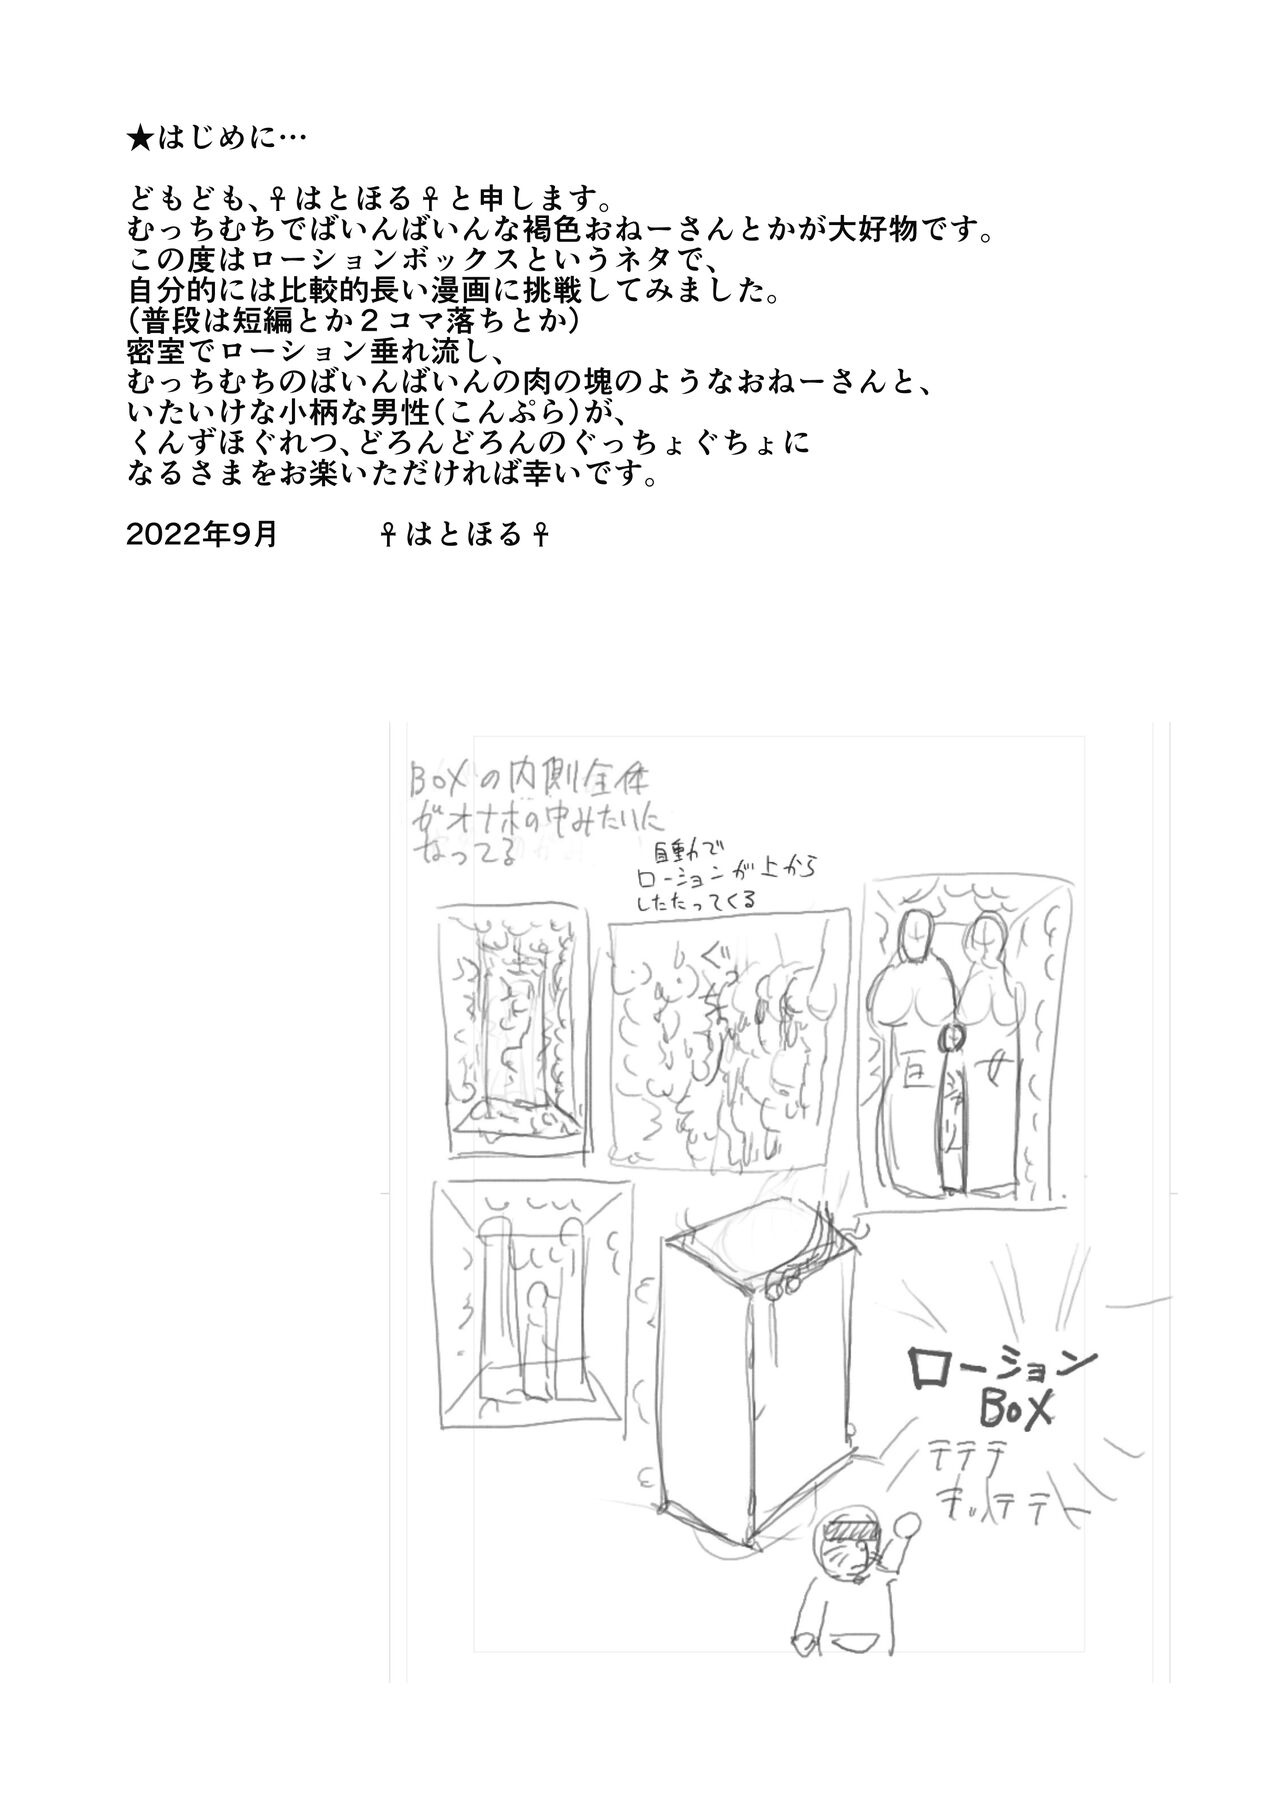 ★はじめに…
どもども、♀はとほる♀と申します。
むっちむちでばいんばいんな褐色おねーさんとかが大好物です。
この度はローションボックスというネタで、
自分的には比較的長い漫画に挑戦してみました。
(普段は短編とか２コマ落ちとか)
密室でローション垂れ流し、
むっちむちのばいんばいんの肉の塊のようなおねーさんと、
いたいけな小柄な男性(こんぷら)が、
くんずほぐれつ、どろんどろんのぐっちょぐちょに
なるさまをお楽いただければ幸いです。
2022年9月 ♀はとほる♀
BOXの内側全体
がオナホの中みたいに
なってる
自動で
ローションが上から
したたってくる
巨
女
ローション
BOX
テテテ